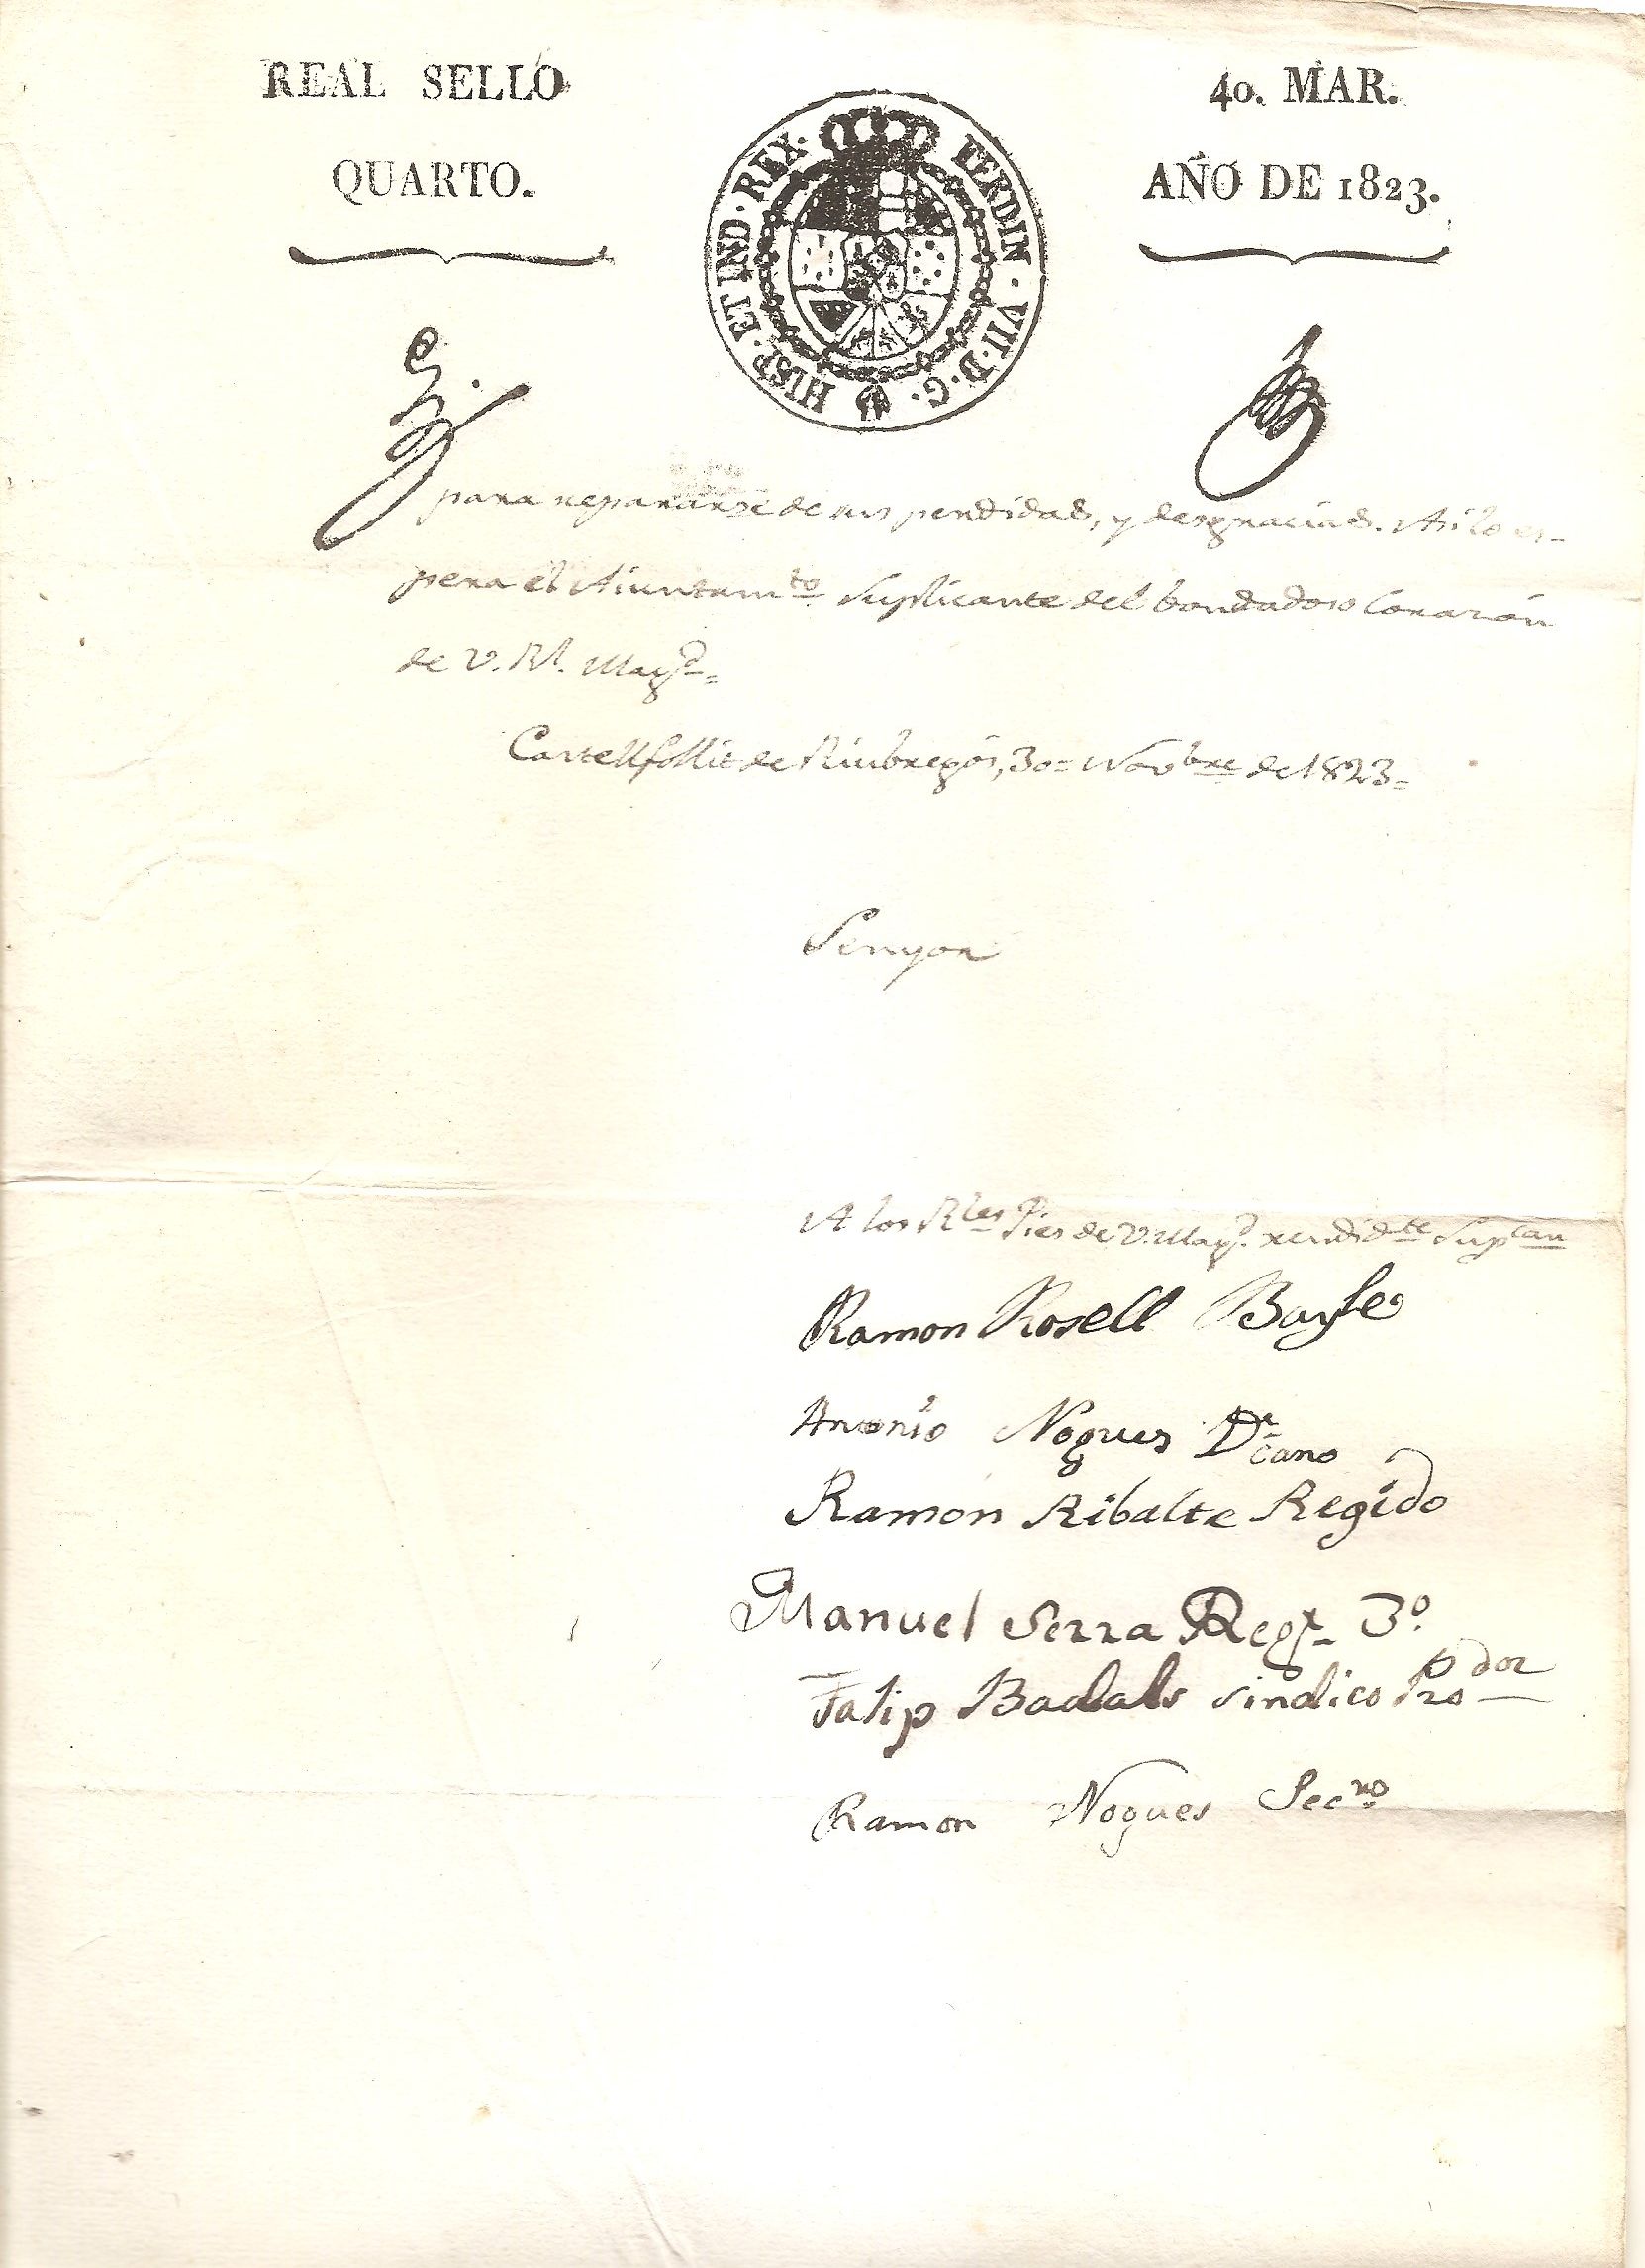 REAL SELLO
QUARTO.
40. MAR.
AÑO DE 1823.
HISP. ET IND. REX. FERDIN. VII. D. G.
para repararse de sus perdidas, y desgracias. Asi lo es-
pera el Aiuntam.to Suplicante del bondadoso Corazón
de V. Rl. Magd.=
Castellfollit de Riubregós, 30= Novbre de 1823=
Senyor
A los Rles Pies de V. Magd. rendidte Suplcan
Ramon Rosell Bayle
Antonio Nogues Decano
Ramon Ribalte Regido
Manuel Serra Regr. 3º.
Falip Badals sindico Prodor
Ramon Nogues Secro